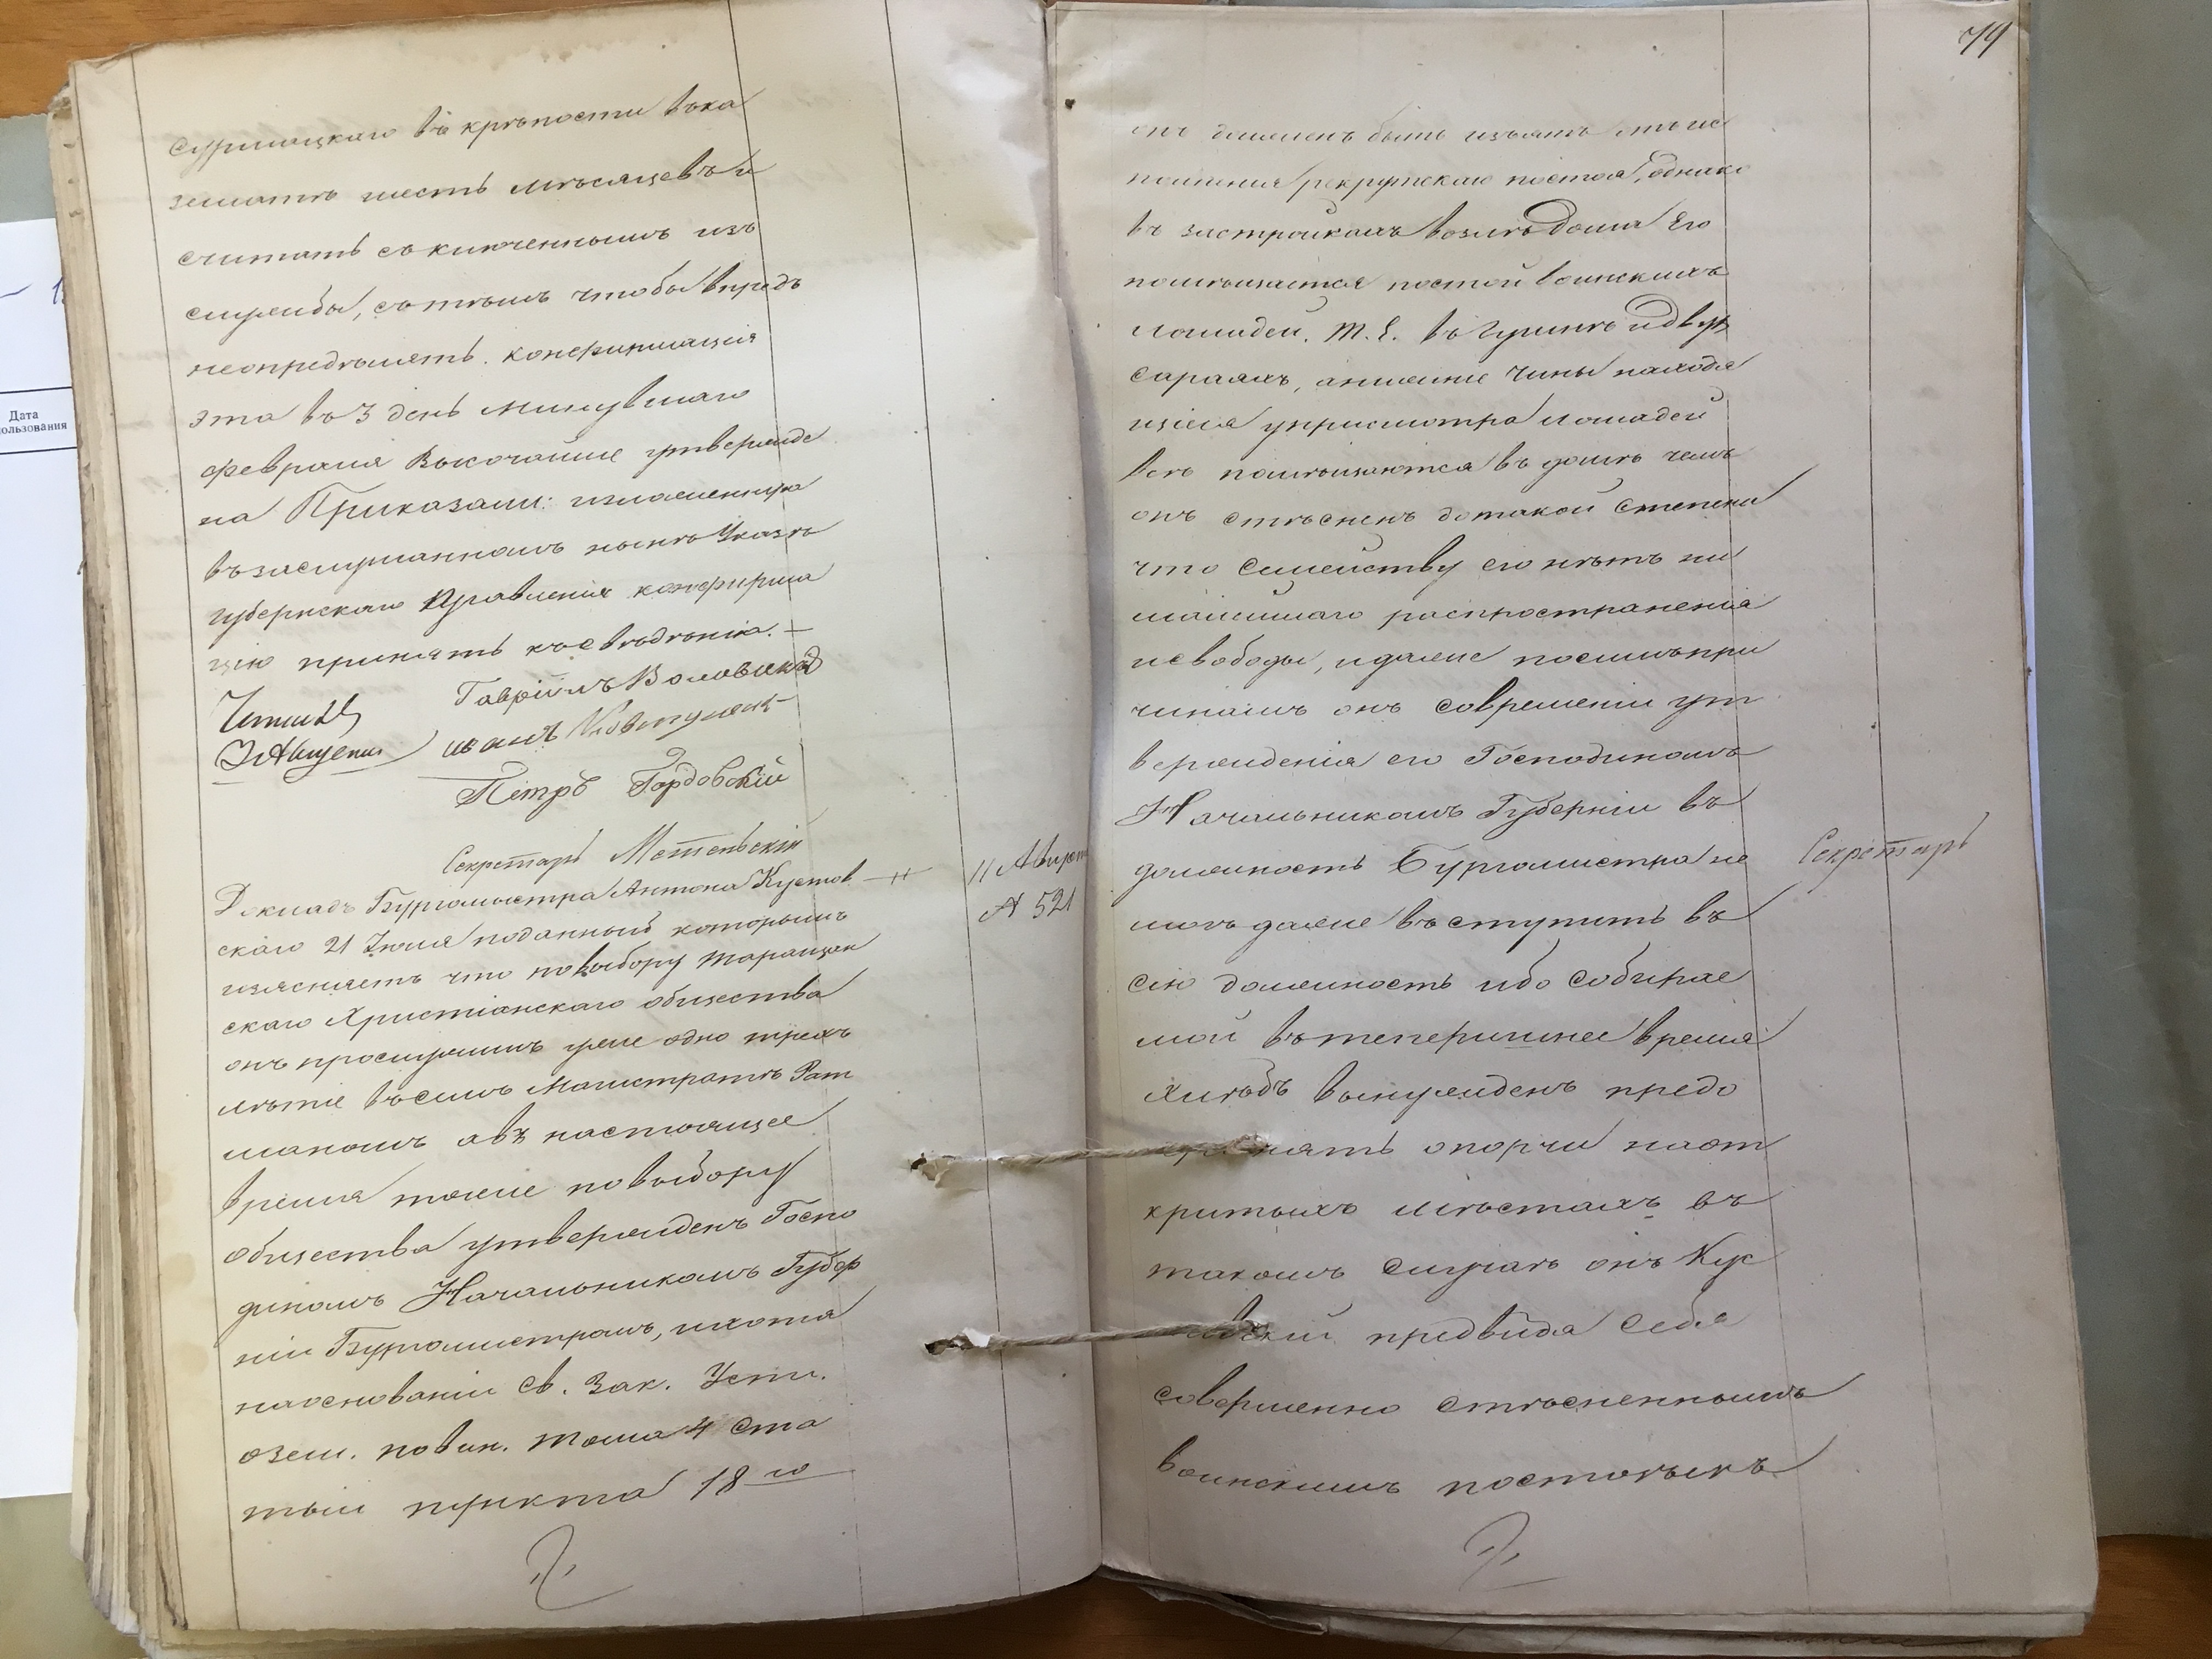 Дата
ользования
Сурмацкаго въ крѣпости въка
зематѣ шесть мѣсяцевъ и
считать съключеннымъ изъ
службы, съ тѣмъ чтобы впредъ
неопредѣлять. конфирмація
эта въ 3 день минувшаго
февраля Высочайше утвержде
на Приказали: изложенную
възаслушанномъ нынѣ Указѣ
Губернскаго Правленія конфирма
цію принять къ свѣдѣнію. —
Гавріилъ
Иванъ
Петръ Гордовскій
Секретарь
Докладъ Бургомистра Антона Кустов
скаго 21 Іюля поданный которымъ
изъясняетъ что повыбору таращан
скаго Христіанскаго общества
онъ прослужилъ уже одно трехъ
лѣтіе въсемъ Магистратѣ Рат
маномъ авъ настоящее
время тоже повыбору
общества утвержденъ Госпо
диномъ Начальникомъ Губер
ніи Бургомистромъ, ихотя
наоснованіи Св. Зак. Уст.
озем. повин. тома 4 Ста
тьи пункта 18го
11 Август
№ 521
79
онъ долженъ быть изъятъ отъ ис
полненія рекрутскаго постоя, однако
въ застройкахъ возлѣ Дома Его
помѣщается постой воинскихъ
лошадей. т. е. въ Клунѣ идвух
сараяхъ, анижніе Чины находя
щіеся уприсмотра лошадей
всѣ помѣщаются въ домѣ чемъ
онъ стѣсненъ дотакой Степени
что Семейству его нѣтъ ни
малѣйшаго распространенія
исвободы, идалее посимъпри
чинамъ онъ современи ут
вержденія его Господиномъ
Начальникомъ Губерніи въ
должность Бургомистра не
могъ даже въступить въ
сію должность ибо собирае
мой вътеперишнее время
Хлѣбъ вынужденъ предо
опорчи наот
критыхъ мѣстахъ въ
такомъ случаѣ онъ Кус
предвидя себя
совершенно стѣсненнымъ
воинскимъ
Секретарь